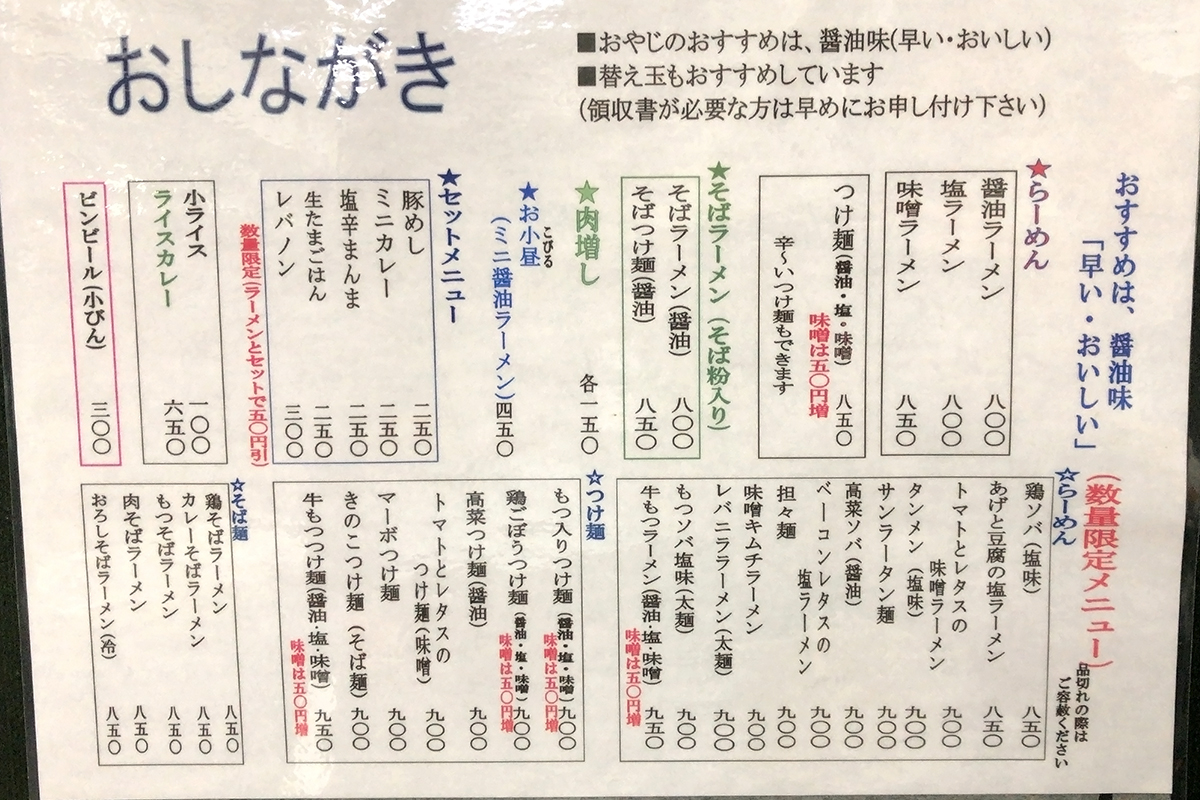 おしながき
■おやじのおすすめは、醤油味(早い･おいしい)
■替え玉もおすすめしています
(領収書が必要な方は早めにお申し付け下さい)
おすすめは、醤油味
「早い・おいしい」
★らーめん
醤油ラーメン 八〇〇
塩ラーメン 八〇〇
味噌ラーメン 八五〇
つけ麺(醤油・塩・味噌) 八五〇
味噌は五〇円増
辛〜いつけ麺もできます
★そばラーメン(そば粉入り)
そばラーメン(醤油) 八〇〇
そばつけ麺(醤油) 八五〇
★肉増し 各一五〇
★お小昼
こびる
(ミニ醤油ラーメン) 四五〇
★セットメニュー
豚めし 二五〇
ミニカレー 二五〇
塩辛まんま 二五〇
生たまごはん 二五〇
レバノン 三〇〇
数量限定(ラーメンとセットで五〇円引)
小ライス 一〇〇
ライスカレー 六五〇
ビンビール(小びん) 三〇〇
(数量限定メニュー)
品切れの際は
ご容赦ください
☆らーめん
鶏ソバ(塩味) 八五〇
あげと豆腐の塩ラーメン 八五〇
トマトとレタスの
味噌ラーメン 九〇〇
タンメン(塩味) 九〇〇
サンラータン麺 九〇〇
高菜ソバ(醤油) 九〇〇
ベーコンレタスの
塩ラーメン 九〇〇
担々麺 九〇〇
味噌キムチラーメン 九〇〇
レバニララーメン(太麺) 九〇〇
もつソバ塩味(太麺) 九〇〇
牛もつラーメン(醤油・塩・味噌) 九五〇
味噌は五〇円増
☆つけ麺
もつ入りつけ麺(醤油・塩・味噌) 九〇〇
味噌は五〇円増
鶏ごぼうつけ麺(醤油・塩・味噌) 九〇〇
味噌は五〇円増
高菜つけ麺(醤油) 九〇〇
トマトとレタスの
つけ麺(味噌) 九〇〇
マーボつけ麺 九〇〇
きのこつけ麺(そば麺) 九〇〇
牛もつつけ麺(醤油・塩・味噌) 九五〇
味噌は五〇円増
☆そば麺
鶏そばラーメン 八五〇
カレーそばラーメン 八五〇
もつそばラーメン 八五〇
肉そばラーメン 八五〇
おろしそばラーメン(冷) 八五〇